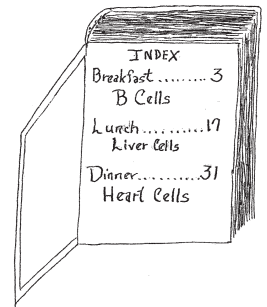 INDEX
Breakfast ......... 3
B Cells
Lunch .......... 17
Liver Cells
Dinner ......... 31
Heart Cells